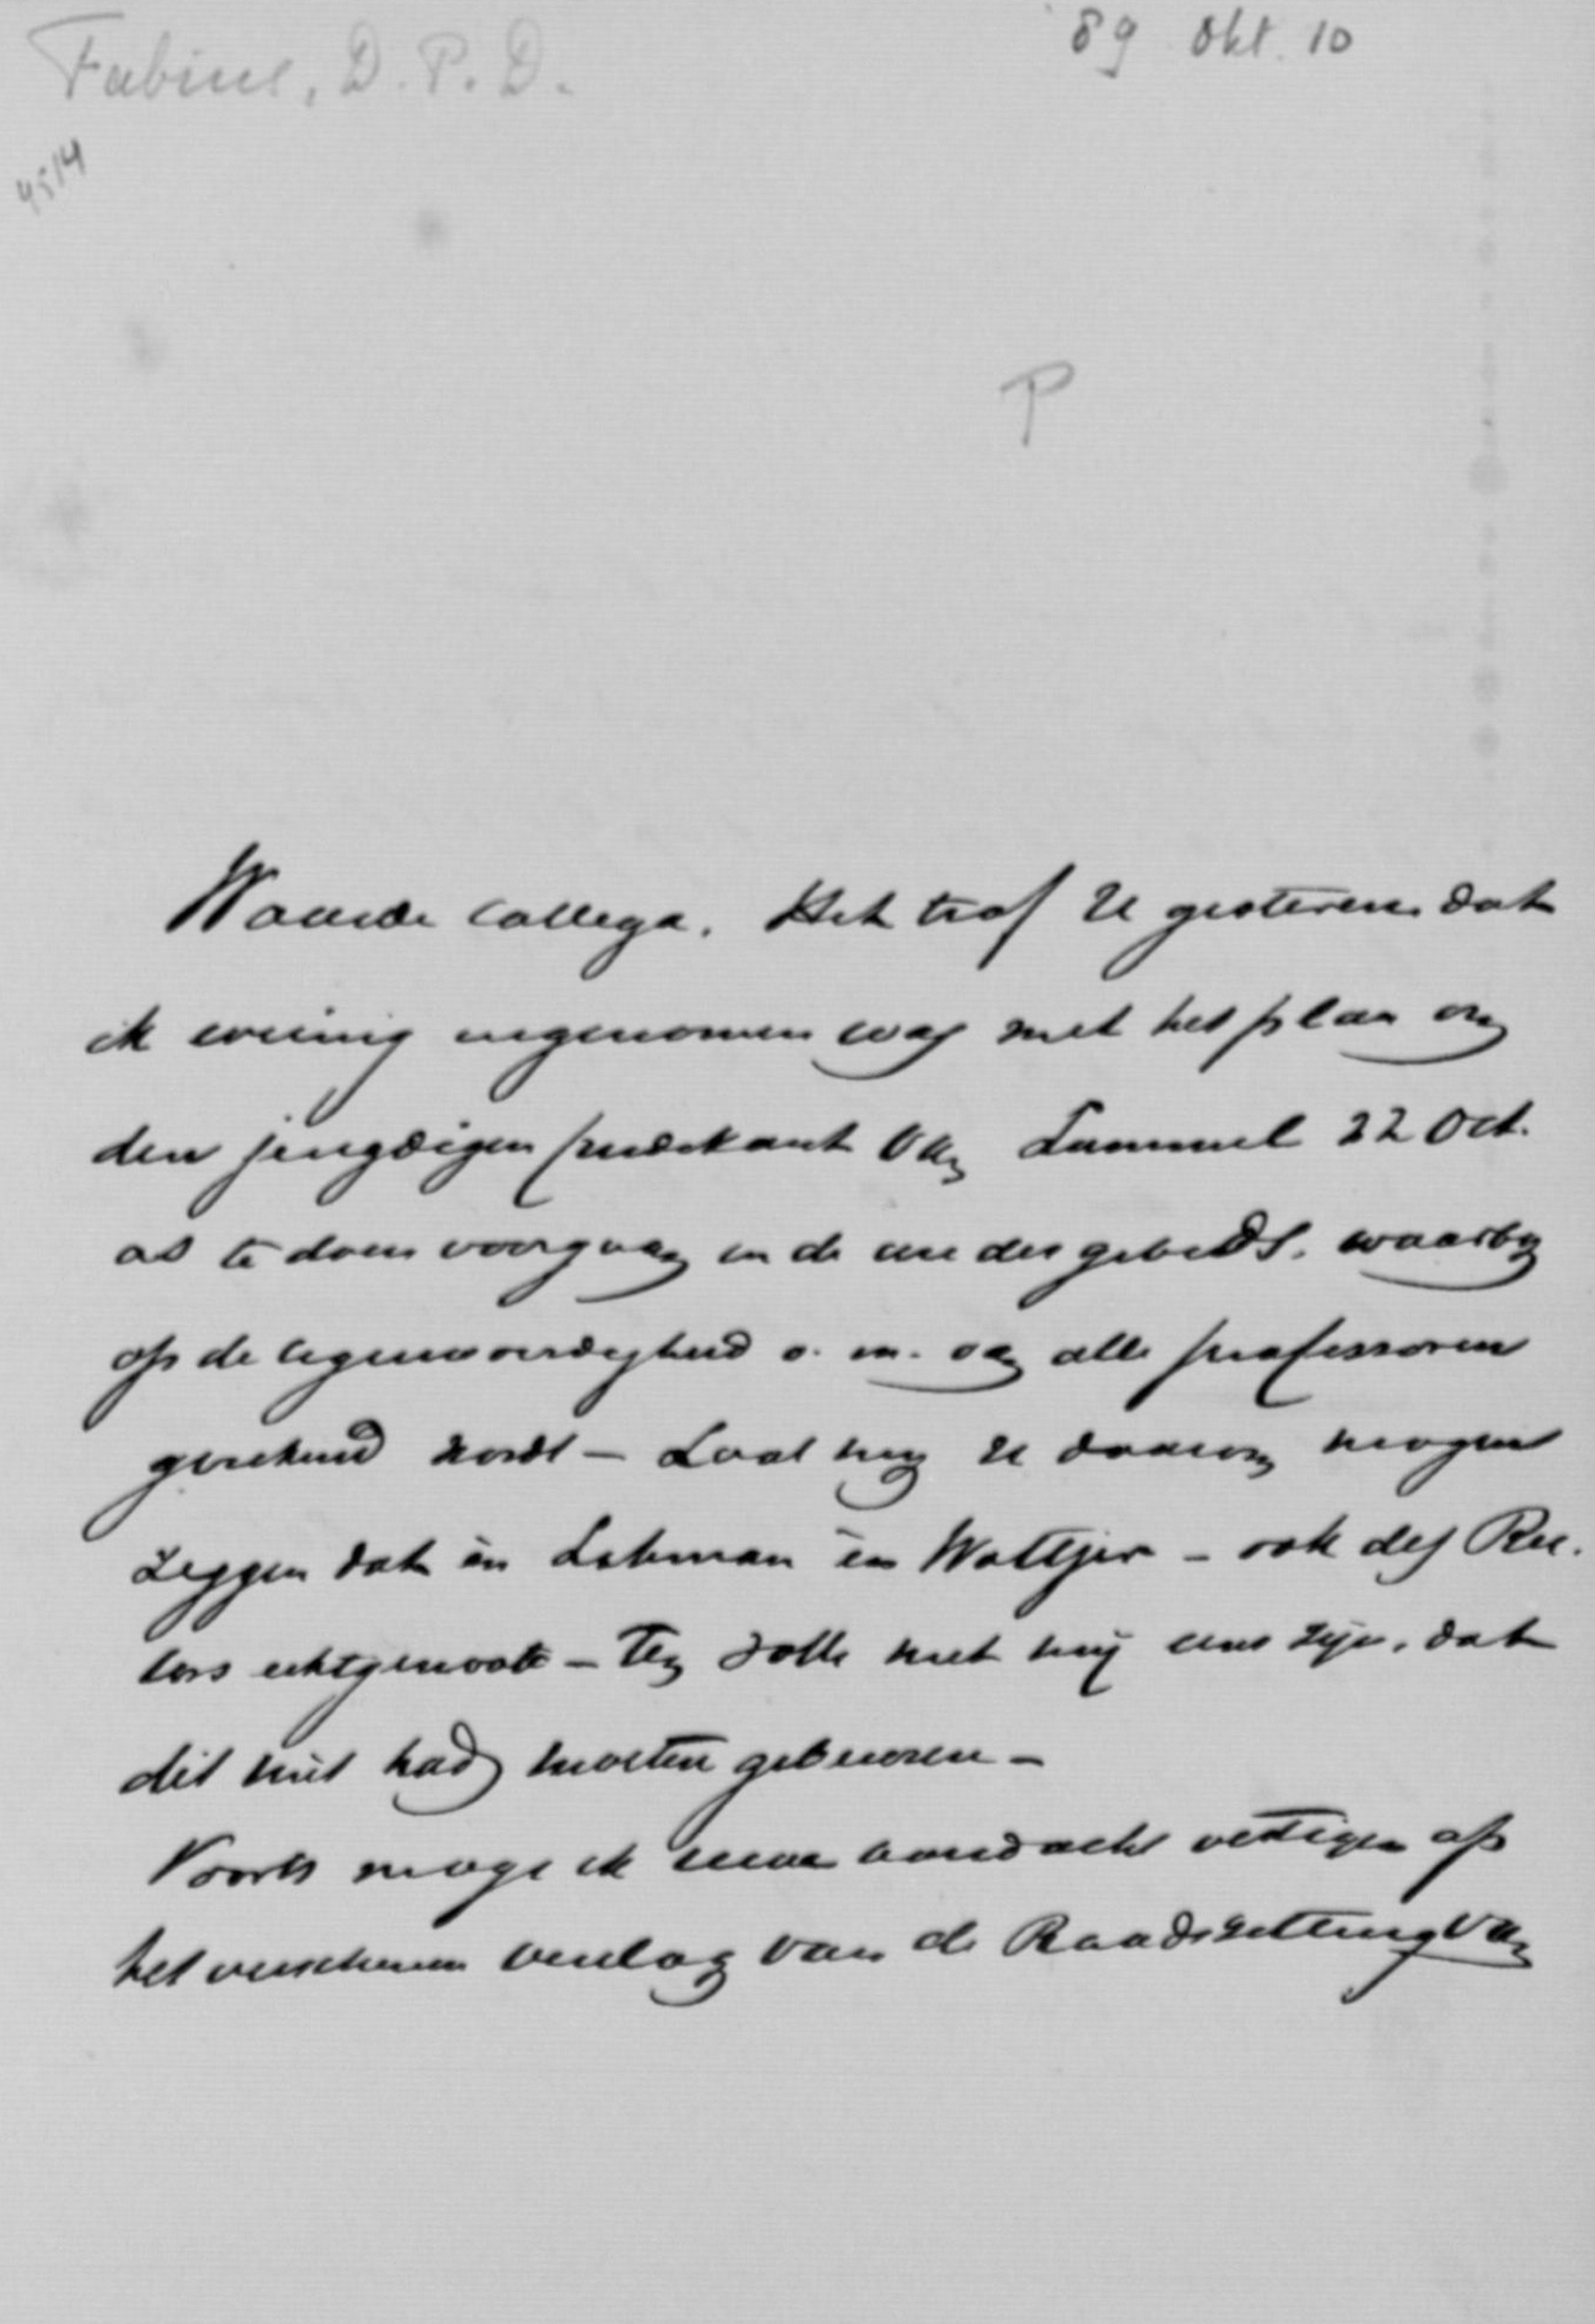 Fabius, D. P. D.
'89 Okt. 10
4514
P
Waarde Collega. Het trof U gisteren dat
ik weinig ingenomen was met het plan om
den jeugdigen predikant van Lummel 22 Oct.
as te doen voorgaan in de ure des gebeds. waarby
op de tegenwoordigheid o. m. van alle professoren
gerekend wordt – Laat my U daarom mogen
zeggen dat èn Lohman èn Woltjer – ook des Rec.
tors echtgenoote – ten volle met mij eens zijn, dat
dit niet had moeten gebeuren –
Voorts moge ik uwe aandacht vestigen op
het verschenen verslag van de Raadszitting van